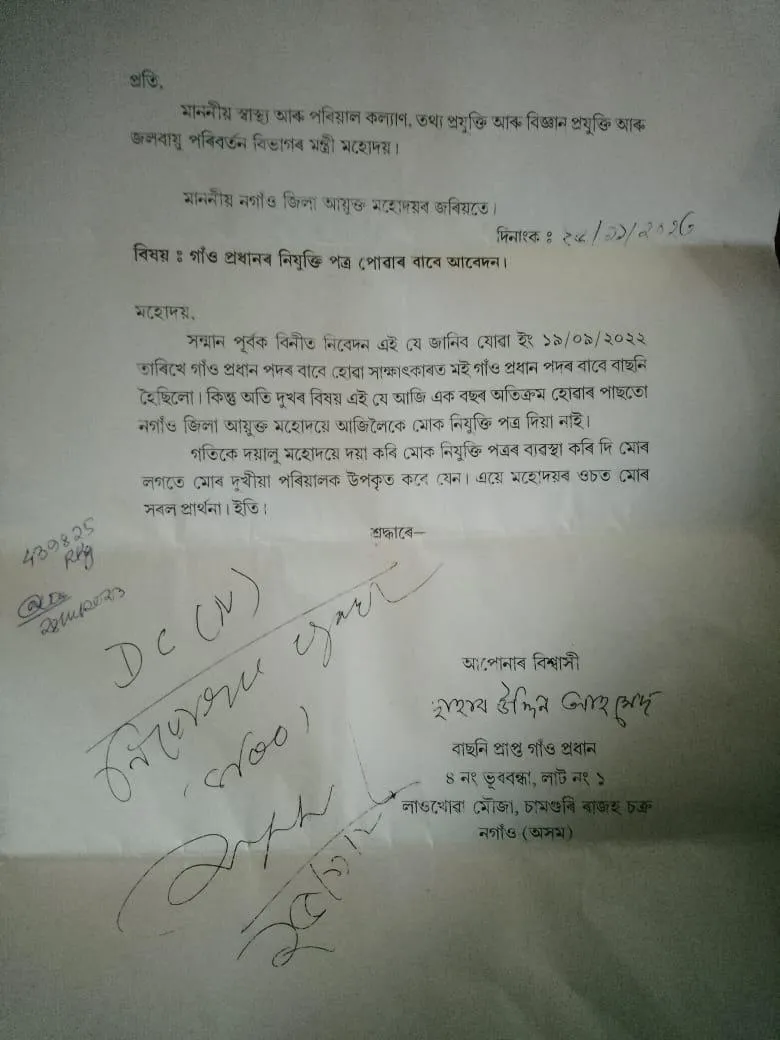 প্ৰতি,
মাননীয় স্বাস্থ্য আৰু পৰিয়াল কল্যাণ, তথ্য প্ৰযুক্তি আৰু বিজ্ঞান প্ৰযুক্তি আৰু
জলবায়ু পৰিবৰ্তন বিভাগৰ মন্ত্ৰী মহোদয়।
মাননীয় নগাঁও জিলা আয়ুক্ত মহোদয়ৰ জৰিয়তে।
দিনাংক :
বিষয় : গাঁও প্ৰধানৰ নিযুক্তি পত্ৰ পোৱাৰ বাবে আবেদন।
মহোদয়,
সন্মান পূৰ্বক বিনীত নিবেদন এই যে জানিব যোৱা ইং ১৯/০৯/২০২২
তাৰিখে গাঁও প্ৰধান পদৰ বাবে হোৱা সাক্ষাৎকাৰত মই গাঁও প্ৰধান পদৰ বাবে বাছনি
হৈছিলো। কিন্তু অতি দুখৰ বিষয় এই যে আজি এক বছৰ অতিক্ৰম হোৱাৰ পাছতো
নগাঁও জিলা আয়ুক্ত মহোদয়ে আজিলৈকে মোক নিযুক্তি পত্ৰ দিয়া নাই।
গতিকে দয়ালু মহোদয়ে দয়া কৰি মোক নিযুক্তি পত্ৰৰ ব্যৱস্থা কৰি দি মোৰ
লগতে মোৰ দুখীয়া পৰিয়ালক উপকৃত কৰে যেন। এয়ে মহোদয়ৰ ওচত মোৰ
সৰল প্ৰাৰ্থনা। ইতি।
শ্ৰদ্ধাৰে—
439825
DC (N)
আপোনাৰ বিশ্বাসী
উদ্দিন আহমেদ
বাছনি প্ৰাপ্ত গাঁও প্ৰধান
৪ নং ভূৰবন্ধা, লাট নং ১
লাওখোৱা মৌজা, চামগুৰি ৰাজহ চক্ৰ
নগাঁও (অসম)